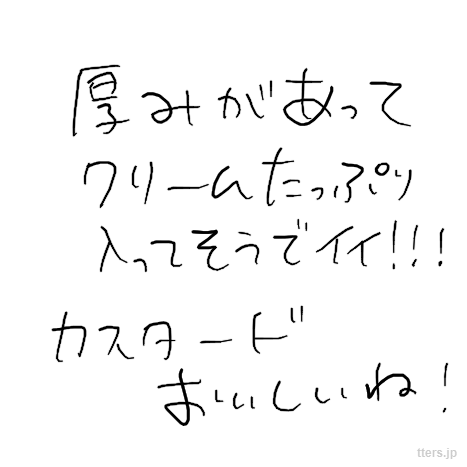 厚みがあって
クリームたっぷり
入ってそうでイイ!!!
カスタード
おいしいね!
tters.jp